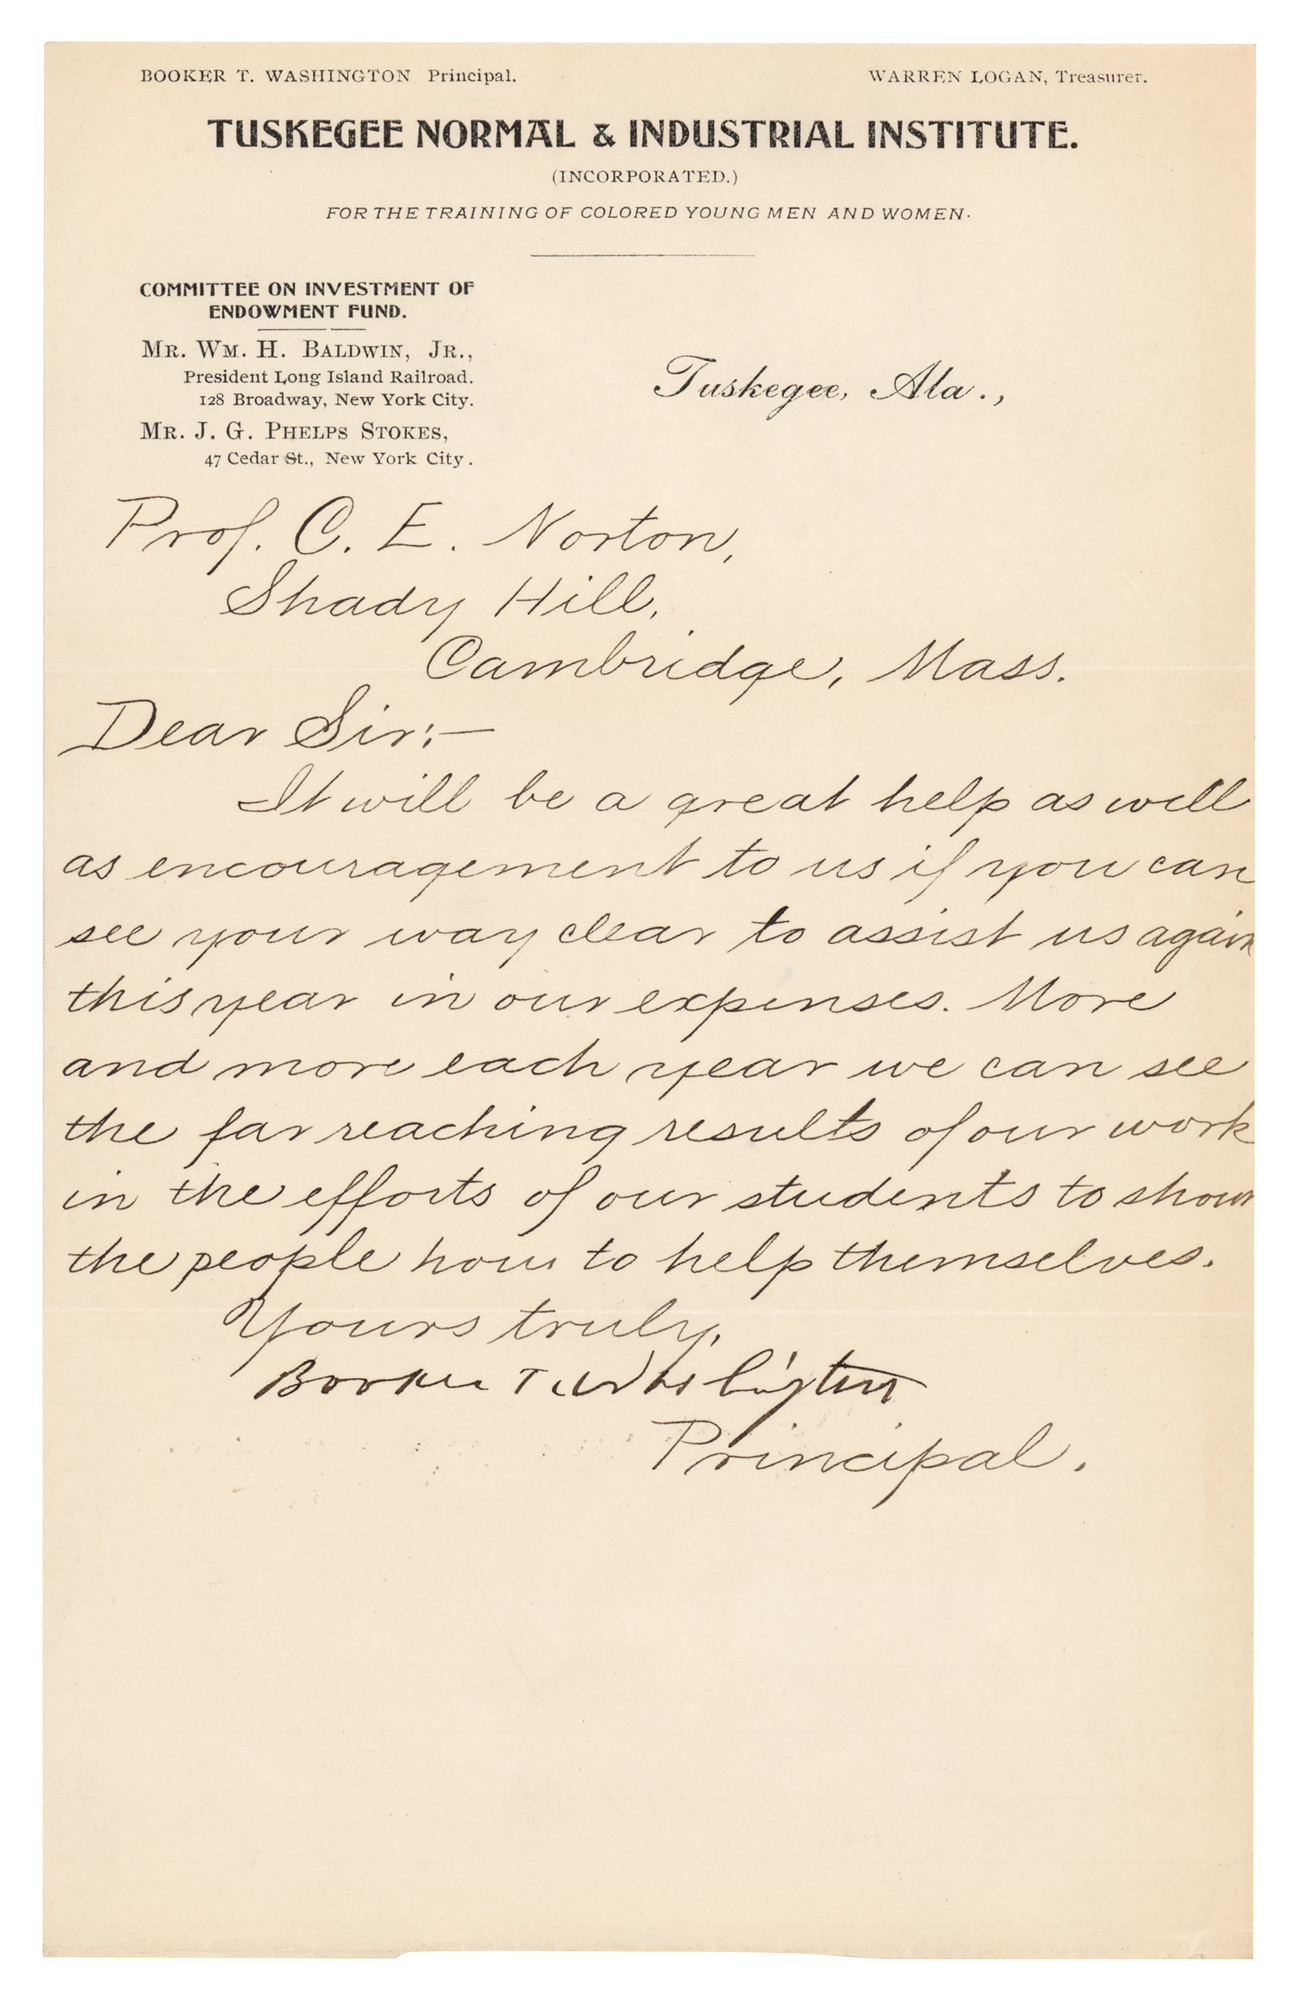 BOOKER T. WASHINGTON Principal. WARREN LOGAN, Treasurer.
TUSKEGEE NORMAL & INDUSTRIAL INSTITUTE.
(INCORPORATED.)
FOR THE TRAINING OF COLORED YOUNG MEN AND WOMEN.
COMMITTEE ON INVESTMENT OF
ENDOWMENT FUND.
MR. WM. H. BALDWIN, JR.,
President Long Island Railroad.
128 Broadway, New York City.
MR. J. G. PHELPS STOKES,
47 Cedar St., New York City.
Tuskegee, Ala.,
Prof. C. E. Norton,
Shady Hill,
Cambridge, Mass.
Dear Sir:—
It will be a great help as well
as encouragement to us if you can
see your way clear to assist us again
this year in our expenses. More
and more each year we can see
the far reaching results of our work
in the efforts of our students to show
the people how to help themselves.
Yours truly,
Booker T. Washington
Principal.